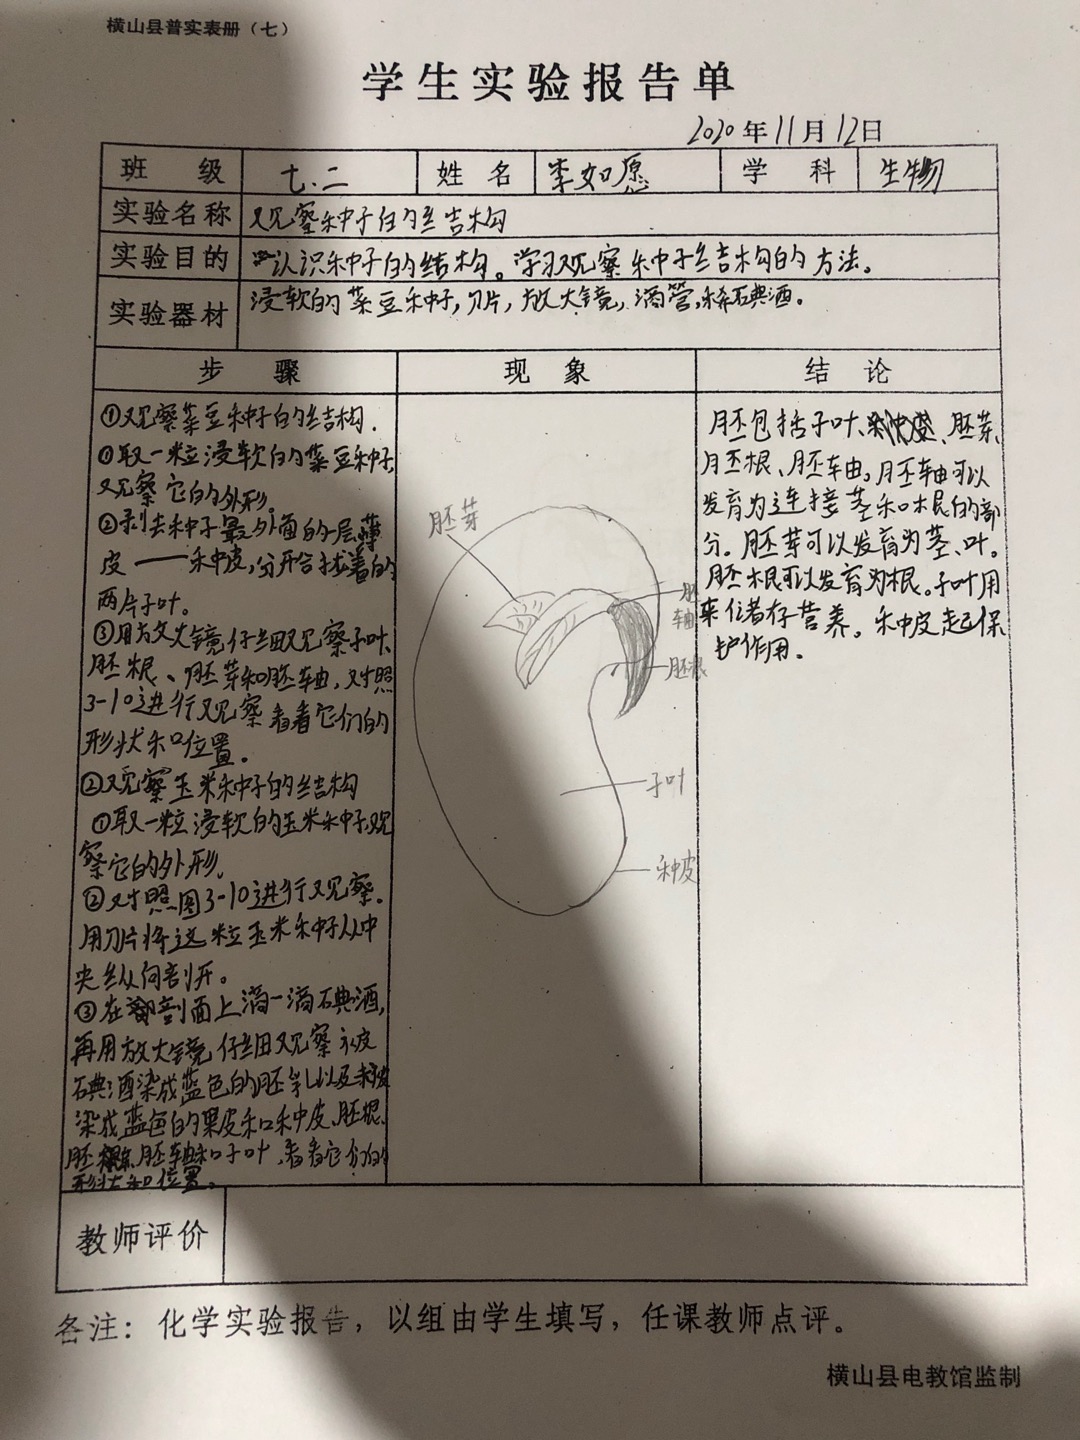 横山县普实表册（七）
学生实验报告单
2020年11月12日
班 级 七.二 姓 名 李如愿 学 科 生物
实验名称 观察种子的结构
实验目的 认识种子的结构。学习观察种子结构的方法。
实验器材 浸软的菜豆种子,刀片,放大镜,滴管,稀碘酒。
步 骤 现 象 结 论
①观察菜豆种子的结构.
①取一粒浸软的菜豆种子,
观察它的外形。
②剥去种子最外面的一层薄
皮——种皮,分开合拢着的
两片子叶。
③用放大镜仔细观察子叶、
胚根、胚芽和胚轴,对照
3-10进行观察看看它们的
形状和位置。
②观察玉米种子的结构
①取一粒浸软的玉米种子,观
察它的外形。
②对照图3-10进行观察.
用刀片将这粒玉米种子从中
央纵向剖开。
③在剖面上滴一滴碘酒,
再用放大镜仔细观察被
碘酒染成蓝色的胚乳以及未被
染成蓝色的果皮和种皮、胚根、
胚 胚轴和子叶,看看它们的
形状和位置。
胚芽
胚
轴
胚根
子叶
种皮
胚包括子叶、胚芽、
胚根、胚轴,胚轴可以
发育为连接茎和根的部
分.胚芽可以发育为茎、叶。
胚根可以发育为根。子叶用
来储存营养。种皮起保
护作用.
教师评价
各注：化学实验报告，以组由学生填写，任课教师点评。
横山县电教馆监制